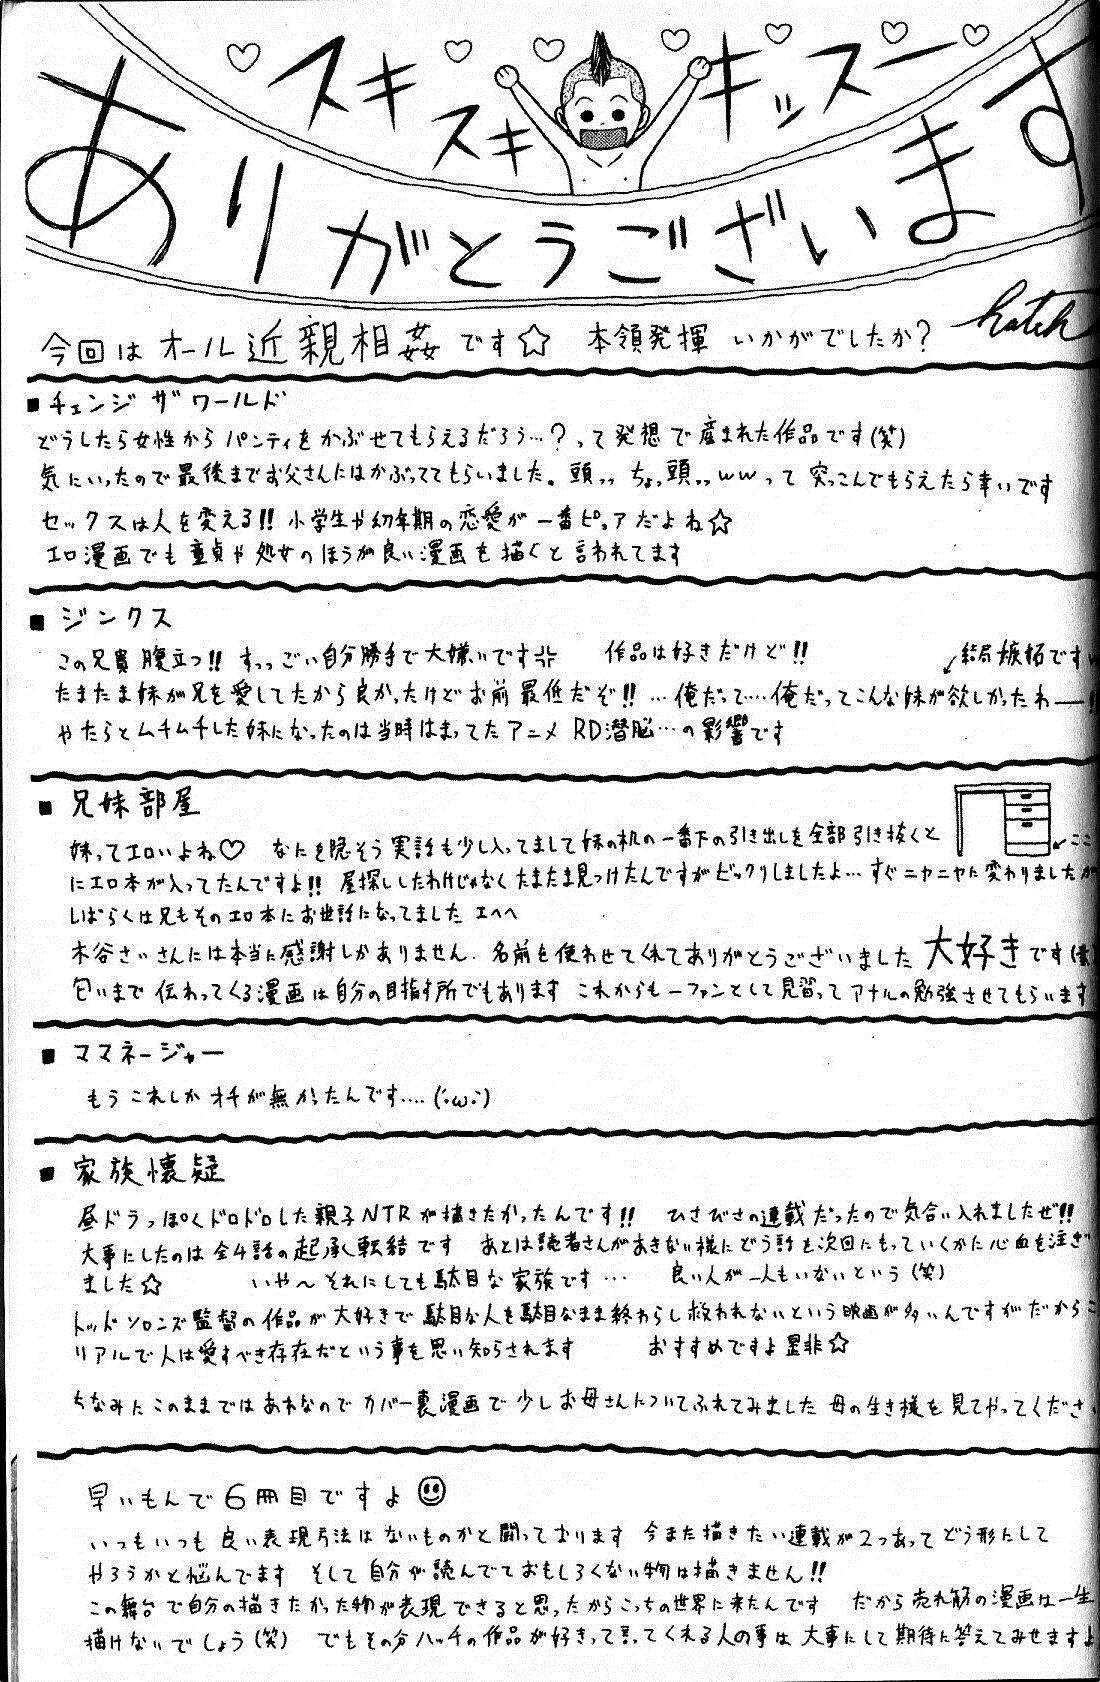 スキスキキッズー
ありがとうございます
今回は オール近親相姦です☆ 本領発揮 いかがでしたか?
hatch
■チェンジ ザ ワールド
どうしたら女性から パンティを かぶせてもらえるだろう…?って発想で産まれた作品です(笑)
気にいったので最後までお父さんにはかぶっててもらいました。頭,, ちょっ頭,,wwって 突っこんでもらえたら幸いです
セックスは人を変える!! 小学生や幼年期の恋愛が 一番ピュアだよね☆
エロ漫画でも 童貞や処女のほうが良い漫画を描くと言われてます
■ジンクス
この兄貴 腹立つ!! すっっごい自分勝手で大嫌いです 作品は好きだけど!! 結局嫉妬ですw
たまたま妹が兄を愛してたから良かったけどお前 最低だぞ!! …俺だって…俺だってこんな妹が欲しかったわー!!
やたらとムチムチした妹になったのは当時はまってたアニメ RD潜脳…の影響です
■兄妹部屋
妹ってエロいよね♡ なにを隠そう実話も少し入ってまして妹の机の一番下の引き出しを全部引き抜くと
ここ
にエロ本が入ってたんですよ!! 屋探ししたわけじゃなくたまたま見つけたんですがビックリしましたよ… すぐニヤニヤに変わりましたが
しばらくは兄もそのエロ本にお世話になってました エヘヘ
木谷さいさんには本当に感謝しかありません. 名前を使わせてくれてありがとうございました 大好きです
匂いまで伝わってくる漫画は自分の目指す所でもあります これからも一ファンとして見習ってアナルの勉強させてもらいます
■ママネージャー
もうこれしかオチが無かったんです….(´;ω;`)
■家族懐疑
昼ドラっぽくドロドロした親子NTRが描きたかったんです!! ひさびさの連載だったので気合い入れましたぜ!!
大事にしたのは全4話の起承転結です あとは読者さんがあきない様にどう話を次回にもっていくかに心血を注ぎ
ました☆ いや〜それにしても駄目な家族です… 良い人が一人もいないという(笑)
トッド ソロンズ監督の作品が大好きで駄目な人を駄目なまま終わらし救われないという映画が多いんですがだからこ
リアルで人は愛すべき存在だという事を思い知らされます おすすめですよ是非☆
ちなみに このままではあれなのでカバー裏漫画で少しお母さんについてふれてみました 母の生き様を見てやってくださ
早いもんで6冊目ですよ
いつもいつも良い表現方法はないものかと闘っております 今また描きたい連載が2つあってどう形にして
やろうかと悩んでます そして自分が読んでておもしろくない物は描きません!!
この舞台で自分の描きたかった物が表現できると思ったからこっちの世界に来たんです だから売れ筋の漫画は一生
描けないでしょう(笑) でもその分ハッチの作品が好きって言ってくれる人の事は大事にして期待に答えてみせますよ